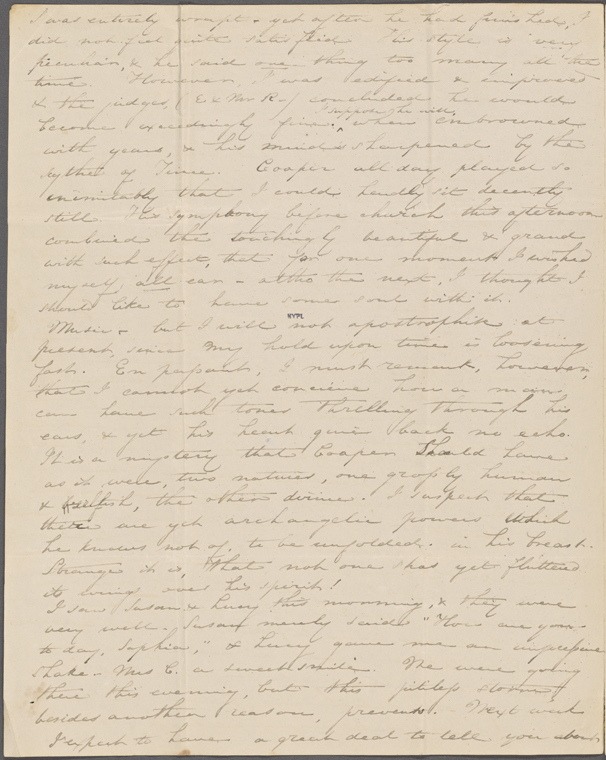 I was entirely wrapt & yet after he had finished, I
did not feel quite satisfied. His style is very
peculiar, & he said one thing too many all the
time. However, I was edified & improved
& the judges, (E & Mr R.) concluded he would
become exceedingly fine, ^ I suppose she will, when embrowned
with years, & his mind is sharpened by the
sythe of Time. Cooper all day played so
inimitably that I could hardly sit decently
still. The symphony before church this afternoon
combined the touchingly beautiful & grand
with such effect, that for one moment I wished
myself all ear – altho the next, I thought I
should like to have some soul with it.
NYPL
Music – but I will not apostrophise at
present, since my hold upon time is loosening
fast. En passant, I must remark, however,
that I cannot yet conceive how a man
can have such tones thrilling through his
ears, & yet his heart give back no echo.
It is a mystery that Cooper should have
as it were, two natures, one grossly human
& selfish, the other divine. I suspect that
there are yet archangelic powers which
he knows not of, to be unfolded in his breast.
Strange it is, that not one has yet fluttered
its wings over his spirit!
I saw Susan & Lucy this morning, & they were
very well. Susan merely said "How are you
to day, Sophia," & Lucy gave me an impressive
shake. Mrs C. a sweet smile. We were going
there this evening, but this pitiless storm,
besides another reason, prevents. Next week
I expect to have a great deal to tell you about